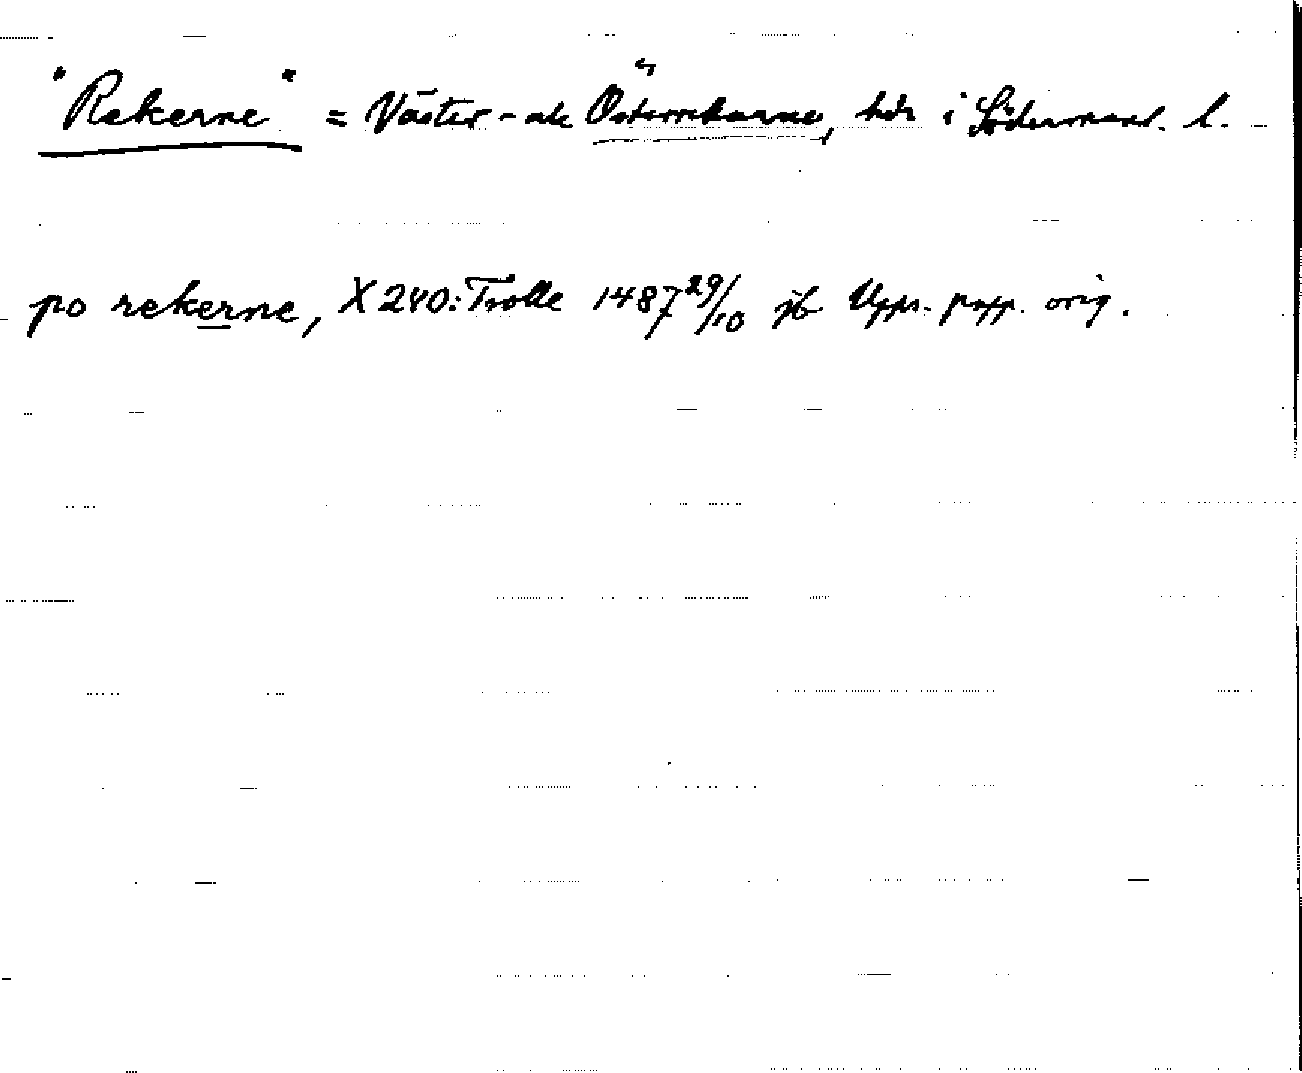 "Rekerne" = Väster- ock Österrekarne, hdr i Södermanl. l.
po rekerne, X 240: Trolle 1487 29/10 jb Upps. papp. orig.